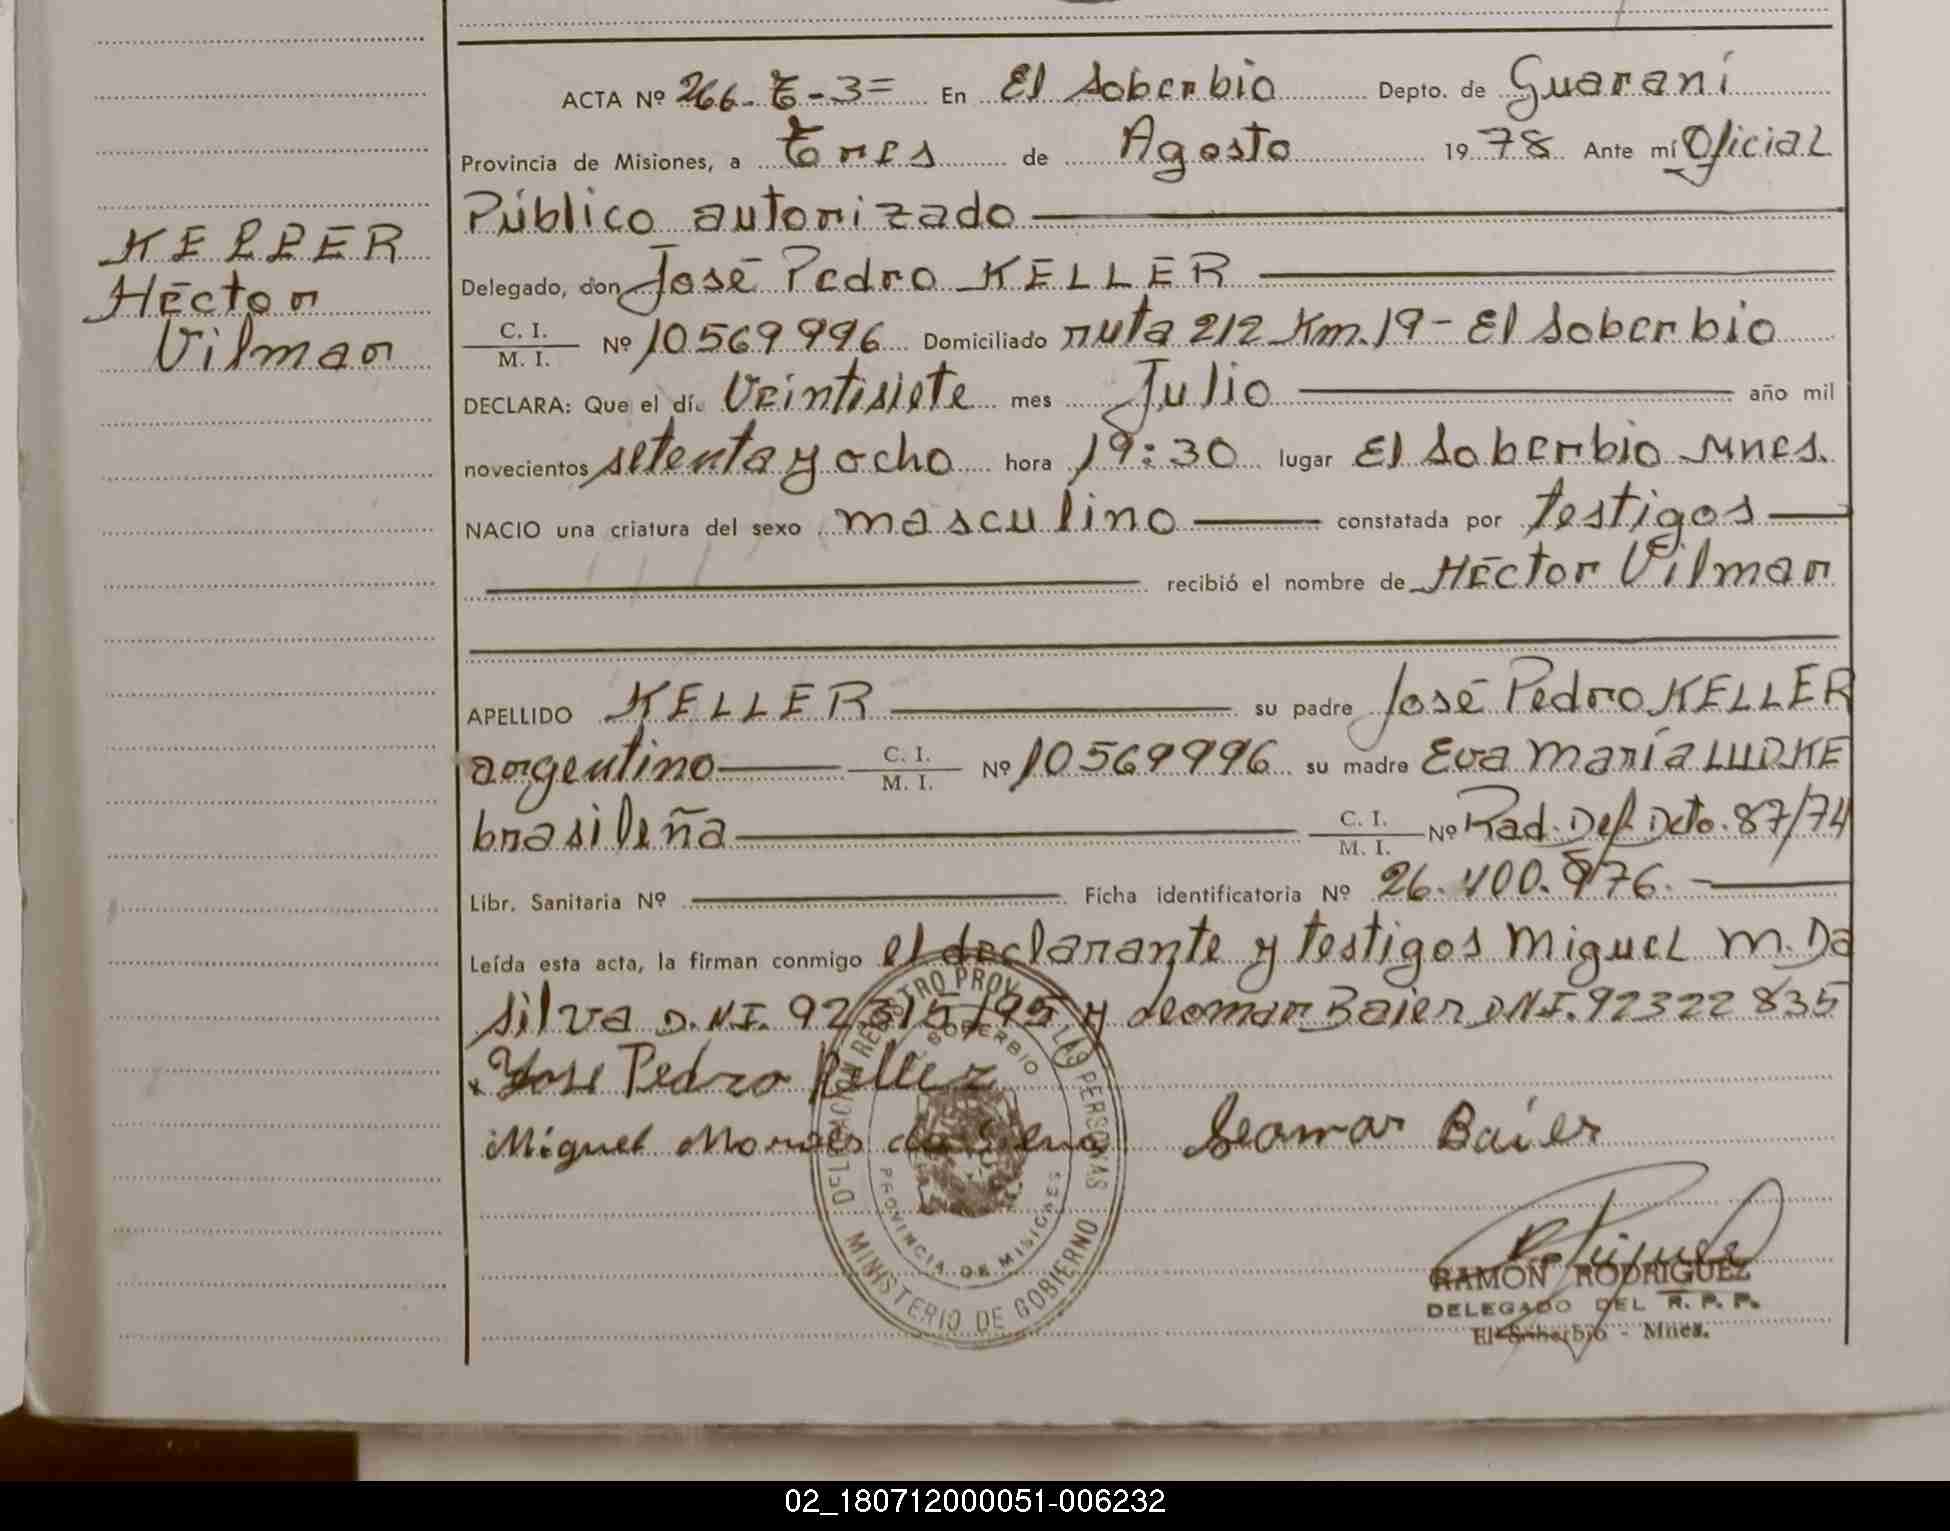 ACTA Nº 266. T-3= En El Soberbio Depto. de Guaraní
Provincia de Misiones, a tres de Agosto 1978 Ante mí Oficial
Público autorizado
KELLER
Héctor
Vilmar
Delegado, don José Pedro KELLER
C. I.
M. I.
Nº 10569996 Domiciliado ruta 212 Km. 19 - El Soberbio
DECLARA: Que el día Veintisiete mes Julio año mil
novecientos setenta y ocho hora 19:30 lugar El Soberbio Mnes.
NACIO una criatura del sexo masculino constatada por testigos
recibió el nombre de Héctor Vilmar
APELLIDO KELLER su padre José Pedro KELLER
argentino C. I. M. I. Nº 10569996 su madre Eva María LUDKE
brasileña C. I. M. I. Nº Rad. Def. Dcto. 87/74
Libr. Sanitaria Nº Ficha identificatoria Nº 26.400.876.
Leída esta acta, la firman conmigo el declarante y testigos Miguel M. Da
Silva D.N.I. y Leomar Baier DNI. 92322835
José Pedro Keller
Miguel Moraes da Silva Leomar Baier
DELEGACION REGISTRO PROV. LAS PERSONAS
SOBERBIO
PROVINCIA DE MISIONES
MINISTERIO DE GOBIERNO
RAMON RODRIGUEZ
DELEGADO DEL R. P. P.
El Soberbio - Mnes.
02_180712000051-006232